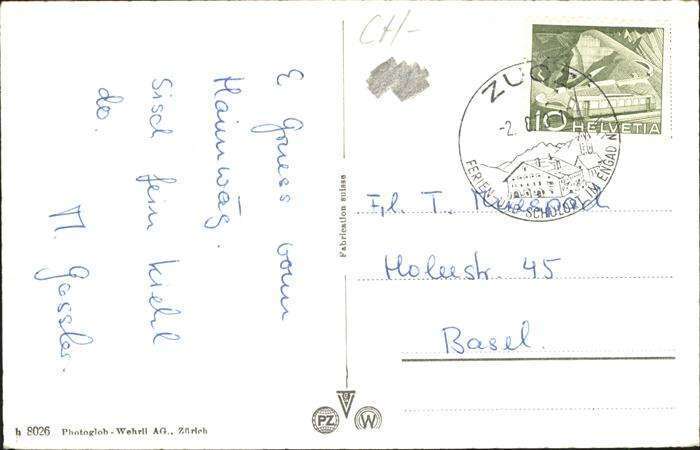 E Gruess vom
Haimwäg.
Sisch fein kiehl
do.
M. Gessler.
CH-
ZUOZ
-2.
FERIEN UND SCHULORT IM ENGADIN
10 HELVETIA
Frl. T.
Holeestr. 45
Basel.
Fabrication suisse
PZ
W
h 8026 Photoglob-Wehrli AG., Zürich